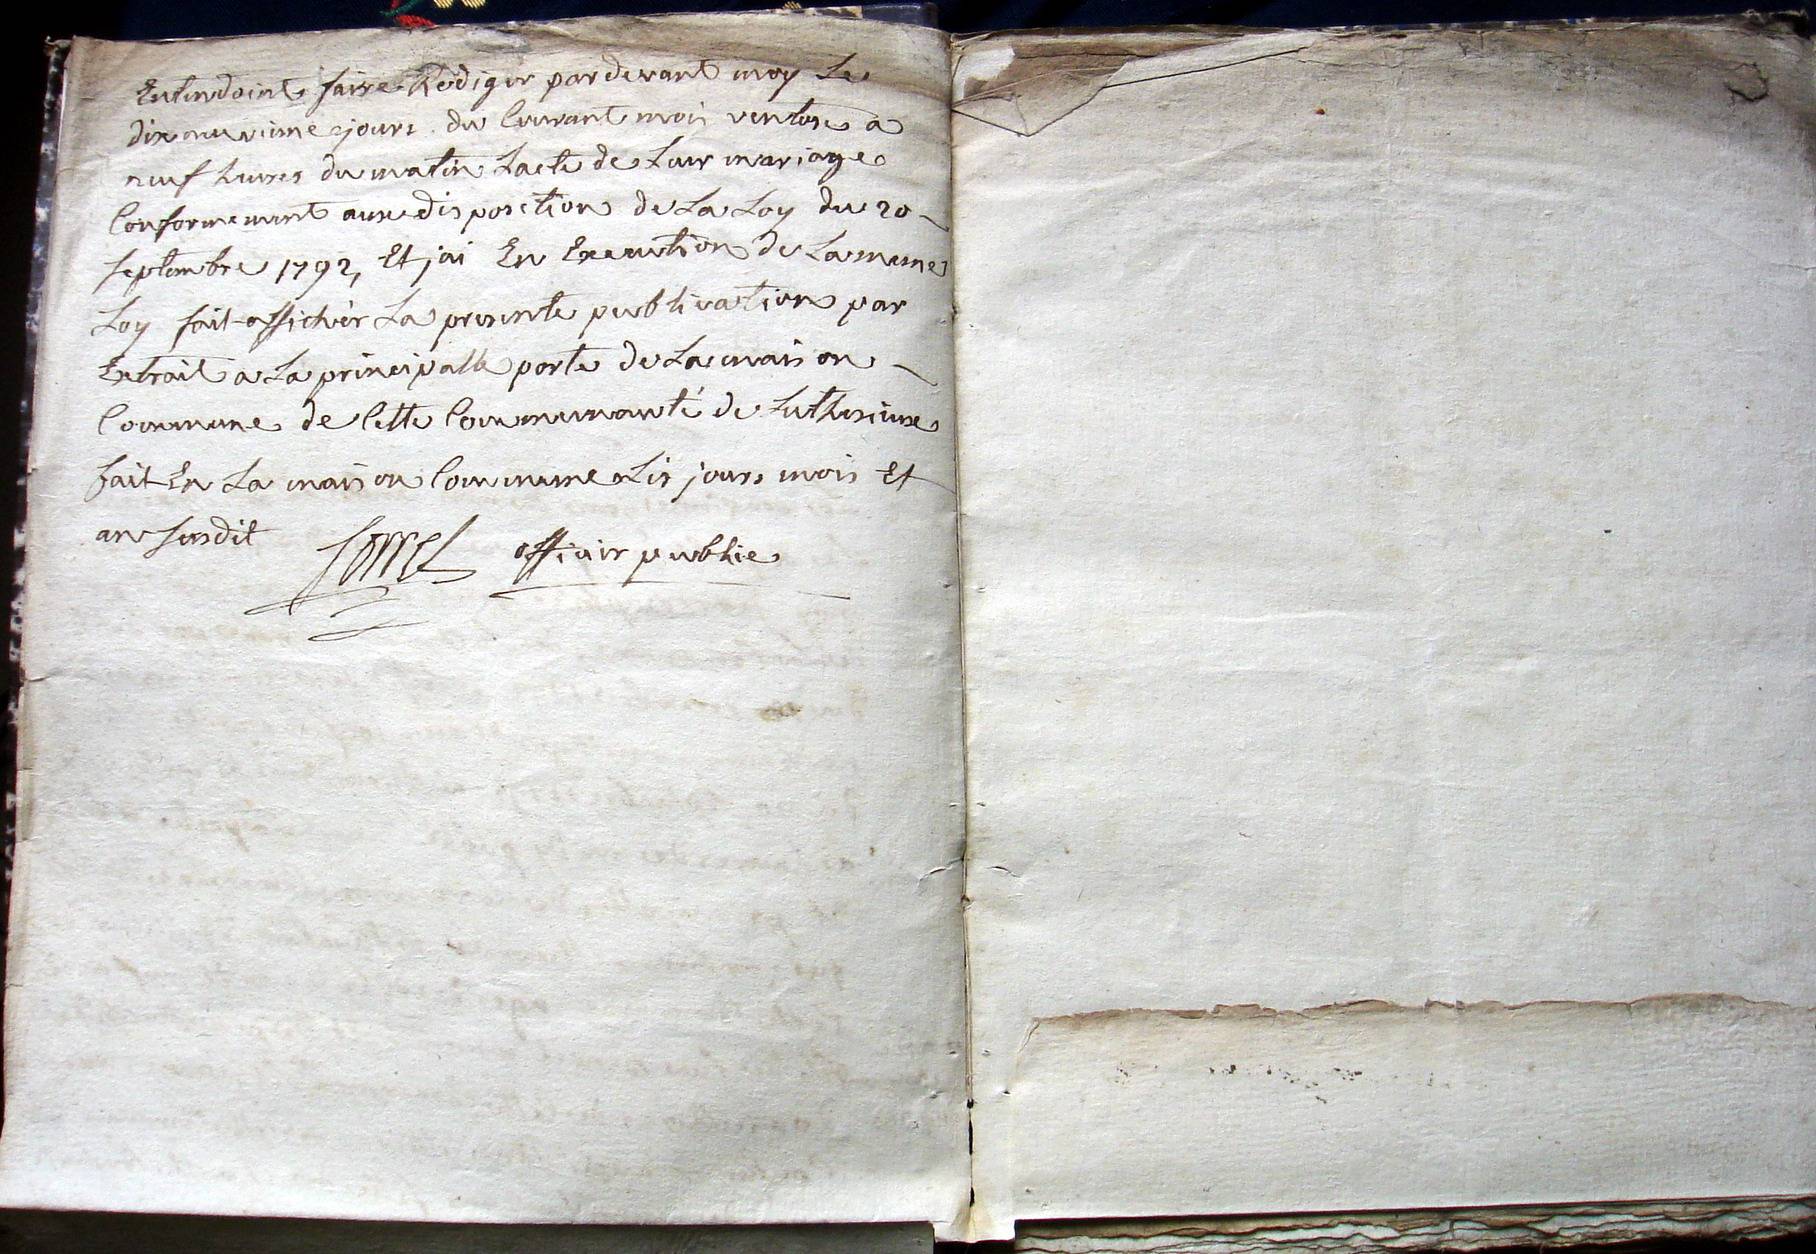 Entendoint faire Rediger pardevant moy Le
dix neuvieme jours du Courant mois ventose a
neuf heures du matin Lacte de Leur mariage
Conformement aux disposition de La Loy du 20
septembre 1792, Et jai En Execution de Lameme
Loy fait afficher La presente publication par
Extrait a La principalle porte de La maison
Commune de Cette Communauté de
fait En La maison Commune Les jours mois Et
an susdit officier publie